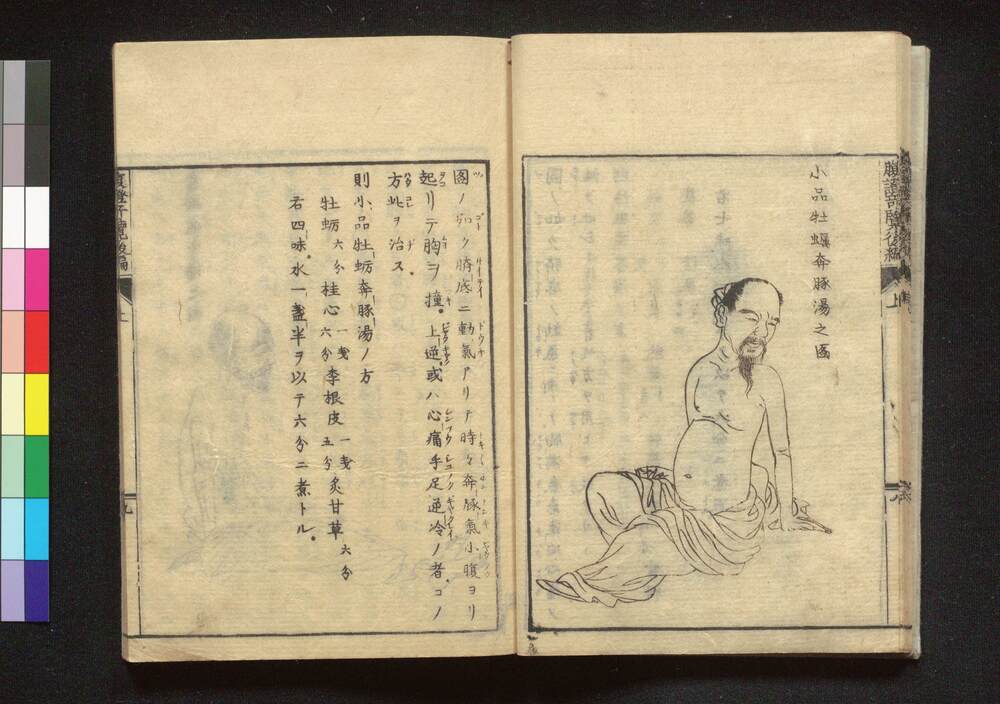 小品牡蠣奔豚湯之圖
上
圖ノ如ク臍底ニ動氣アリテ時々奔豚氣小腹ヨリ
起リテ胸ヲ撞。上逆。或ハ心痛手足逆冷ノ者。コノ
方此ヲ治ス
則小品牡蛎奔豚湯ノ方
牡蛎 六分 桂心 一戔六分 李根皮 一戔五分 炙甘草 六分
右四味。水一盞半ヲ以テ六分ニ煮トル。
九